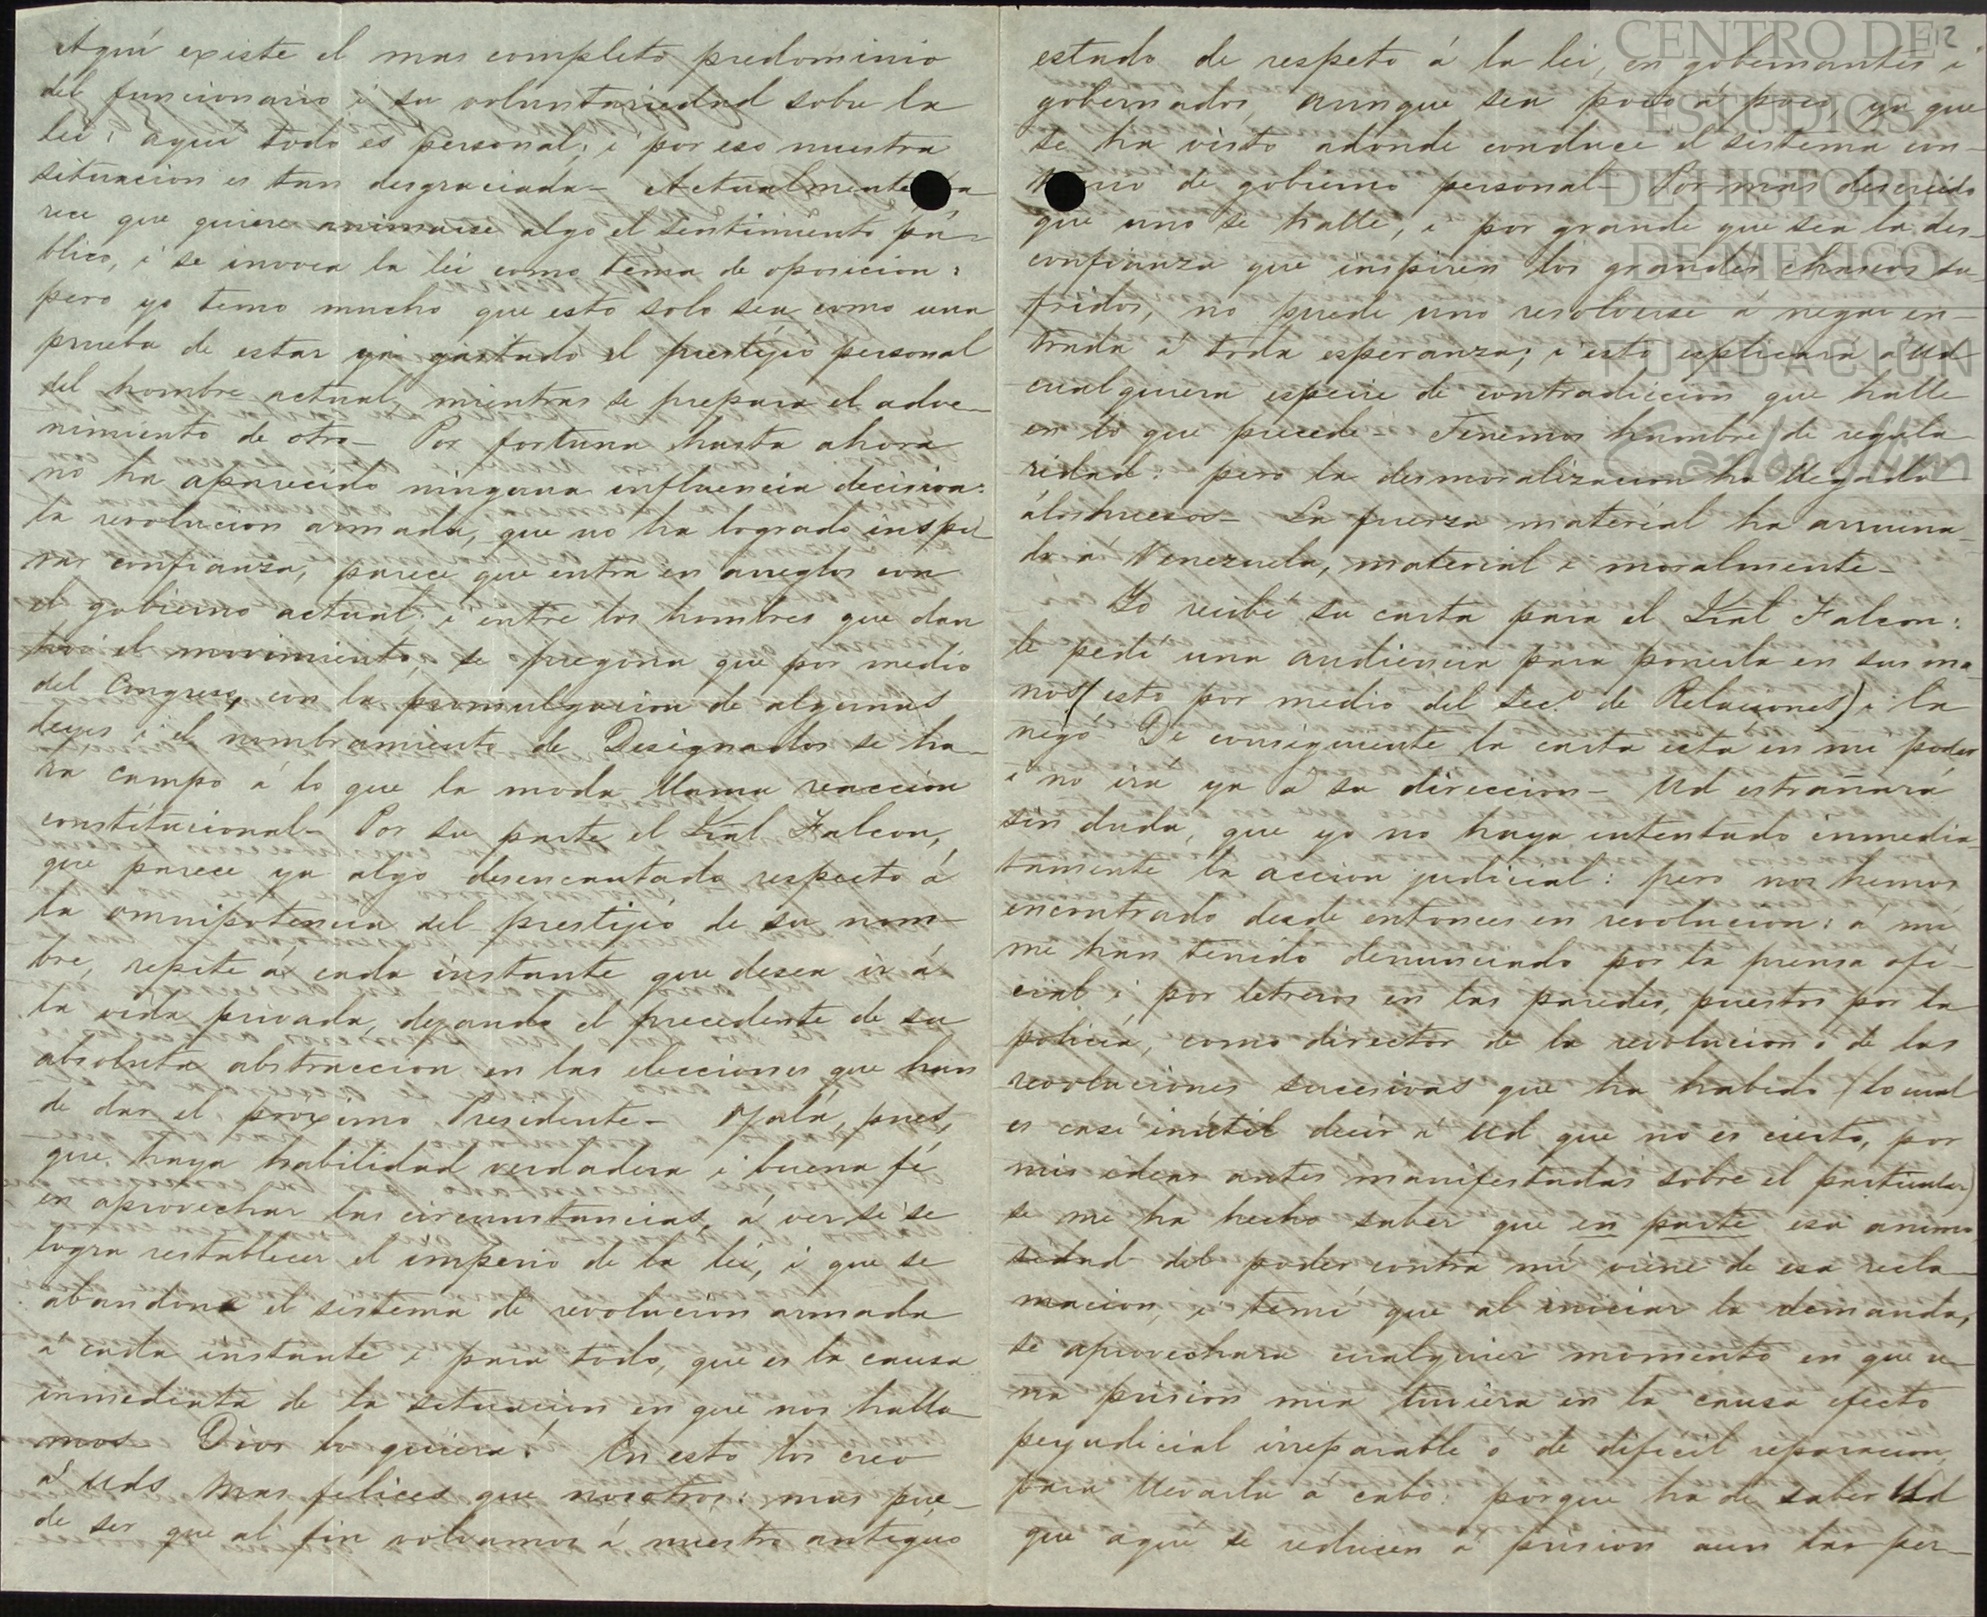 Aquí existe el mas completo predominio
del funcionario i su voluntariedad sobre la
lei: aquí todo es personal; i por eso nuestra
situacion es tan desgraciada- Actualmente pa
rece que quiere animarse algo el sentimiento pú-
blico, i se invoca la lei como tema de oposicion:
pero yo temo mucho que esto solo sea como una
prueba de estar ya gastado el prestijio personal
del hombre actual, mientras se prepara el adve-
nimiento de otro- Por fortuna hasta ahora
no ha aparecido ninguna influencia decisiva:
la revolucion armada, que no ha logrado inspi
rar confianza, parece que entra en arreglos con
el gobierno actual: i entre los hombres que dan
hoi el movimiento, se pregona que por medio
del Congreso, con la promulgacion de algunas
leyes i el nombramiento de Designados se ha-
ra campo á lo que la moda llama reaccion
constitucional- Por su parte el Gral Falcon,
que parece ya algo desencantado respecto á
la omnipotencia del prestijio de su nom-
bre, repite á cada instante que desea ir á
la vida privada, dejando el precedente de su
absoluta abstraccion en las elecciones que han
de dar el proximo Presidente- Ojalá, pues,
que haya habilidad verdadera i buena fé
en aprovechar las circunstancias, á ver si se
logra restablecer el imperio de la lei, i que se
abandone el sistema de revolucion armada
á cada instante i para todo, que es la causa
inmediata de la situacion en que nos halla-
mos Dios lo quiera! En esto los creo
á Uds mas felices que nosotros: mas pue-
de ser que al fin volvamos á nuestro antiguo
12
estado de respeto á la lei, en gobernantes i
gobernados, aunque sea poco á poco, ya que
se ha visto adonde conduce el sistema con-
de gobierno personal- Por mas descreido
que uno se halle, i por grande que sea la des-
confianza que inspiren los grandes chascos su-
fridos, no puede uno resolverse á negar en-
trada á toda esperanza; i esto esplicará á Ud
cualquiera especie de contradiccion que halle
en lo que precede- Tenemos hambre de regula-
ridad: pero la desmoralizacion ha llegado
á los huesos- La fuerza material ha arruina-
do á Venezuela, material i moralmente-
Yo recibí su carta para el Gral Falcon:
le pedí una audiencia para ponerla en sus ma
nos (esto por medio del Sec.º de Relaciones) i la
negó De consiguiente la carta esta en mi poder
i no irá ya á su direccion- Ud estrañará
sin duda, que yo no haya intentado inmedia
tamente la accion judicial: pero nos hemos
encontrado desde entonces en revolucion: á mi
me han tenido denunciado por la prensa ofi-
cial i por letreros en las paredes, puestos por la
policia, como director de la revolucion o de las
revoluciones sucesivas que ha habido (lo cual
es casi inútil decir á Ud que no es cierto, por
mis ideas antes manifestadas sobre el particular)
se me ha hecho saber que en parte esa animo
sidad del poder contra mí viene de esa recla-
macion, i temí que al iniciar la demanda,
se aprovechara cualquier momento en que u-
na prision mia tuviera en la causa efecto
perjudicial irreparable o de dificil reparacion,
para llevarla á cabo: porque ha de saber Ud
que aquí se reducen á prision aun las per-
CENTRO DE
ESTUDIOS
DE HISTORIA
DE MEXICO
FUNDACION
Carlos Slim